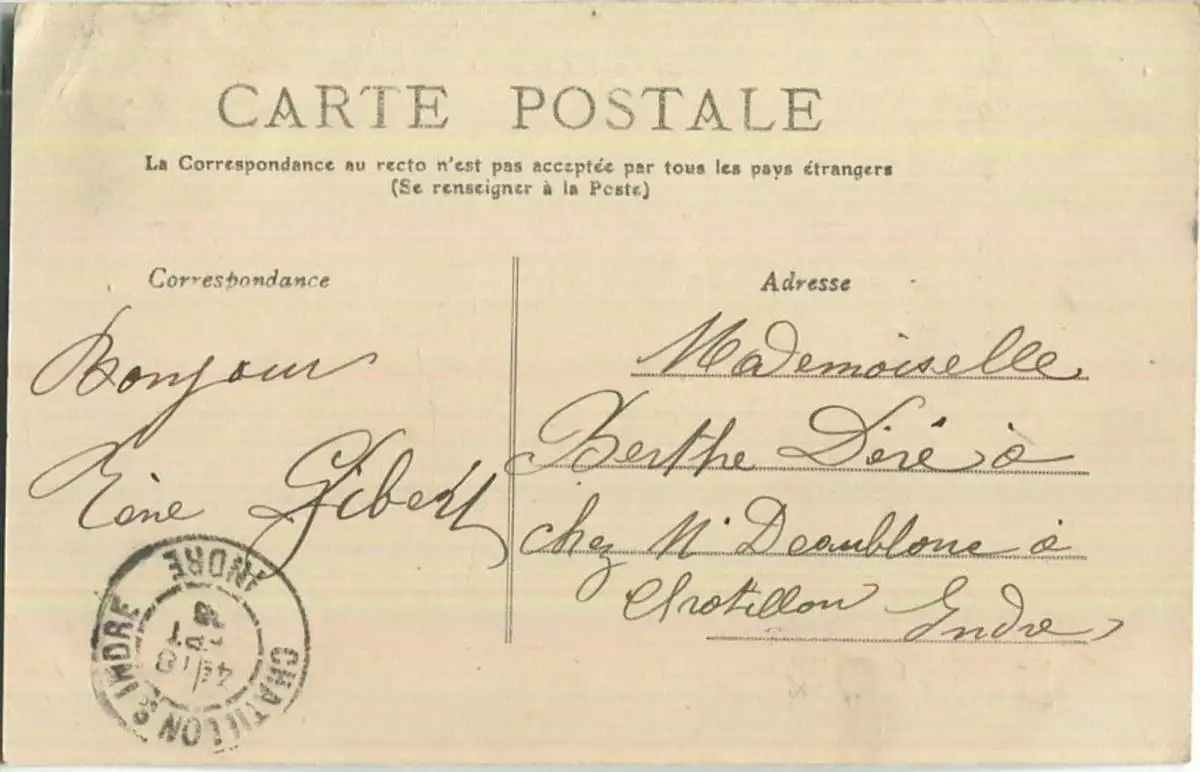 CARTE POSTALE
La Correspondance au recto n'est pas acceptée par tous les pays étrangers
(Se renseigner à la Poste)
Correspondance
Bonjour
Réne Gibert
Adresse
Mademoiselle
Berthe Déré à
chez Mr Deaublanc à
Chatillon Indre
CHATILLON S. INDRE
INDRE